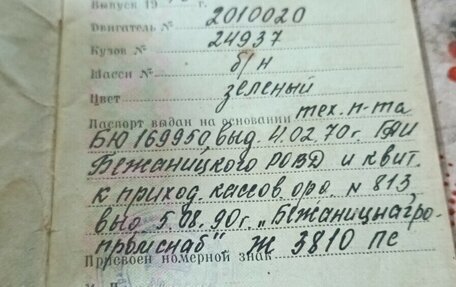 Выпуск 19 г.
Двигатель № 2010020
Кузов № 24937
Шасси № б/н
Цвет зеленый
Паспорт выдан на основании тех. п-та
БЮ 169950 выд. 4.02.70г. ГАИ
Бежаницкого РОВД и квит.
к приход. кассов орд. N 813
выд 5.08.90г. „Бежаницыагро-
промснаб". Ж 3810 ПС
Присвоен номерной знак